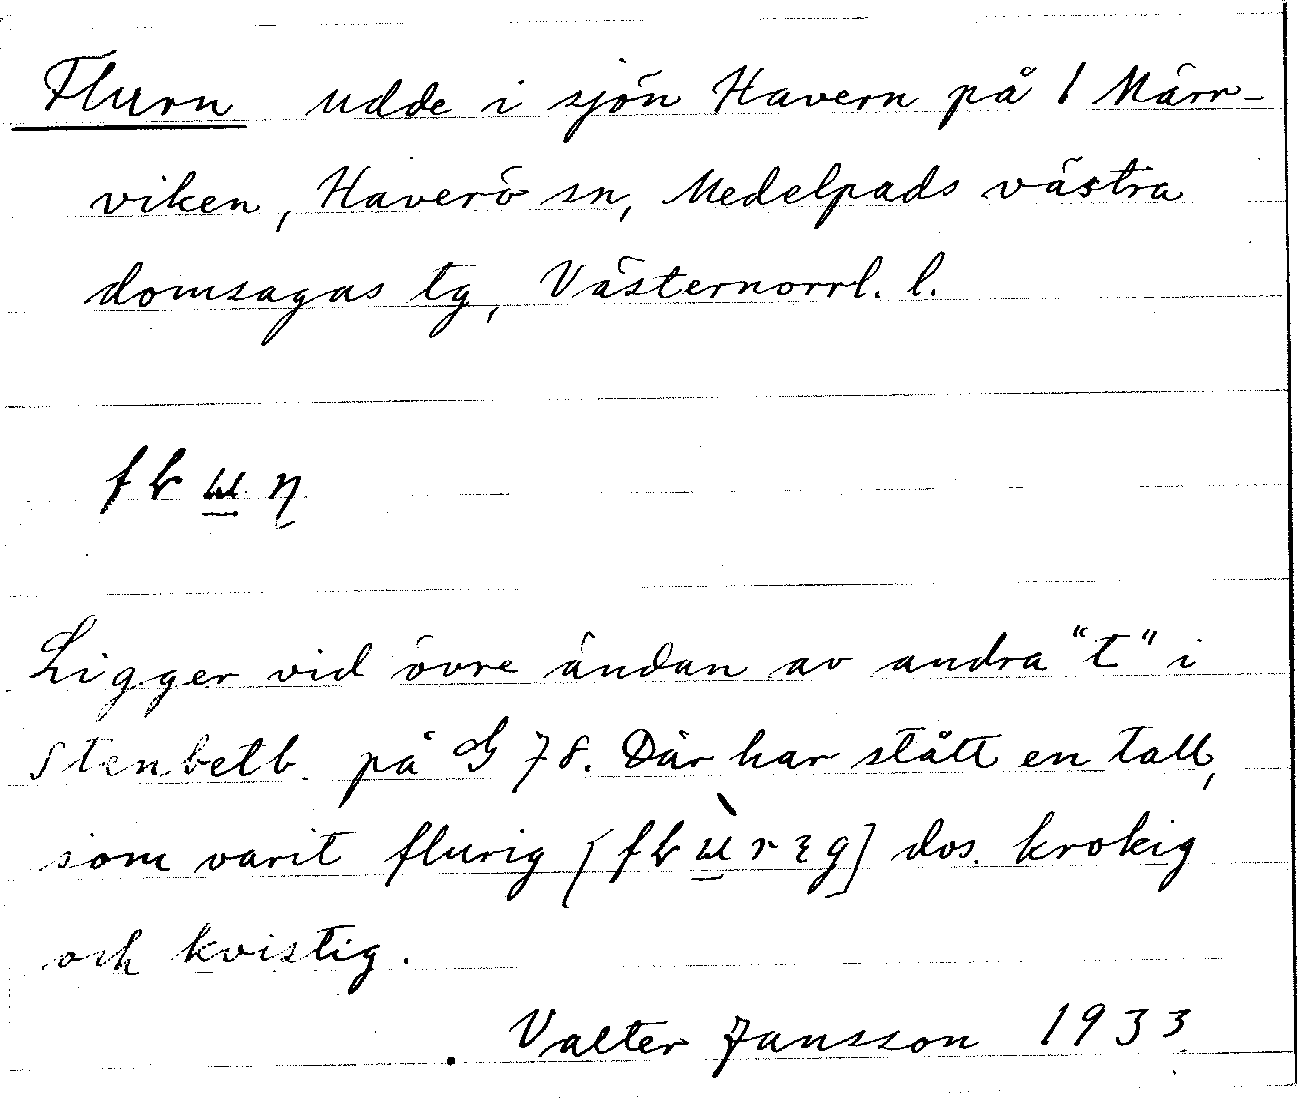 Flurn udde i sjön Havern på 1 Märr-
viken, Haverö sn, Medelpads västra
domsagas tg, Västernorrl. l.
Ligger vid övre ändan av andra "t" i
Stenbetb. på G 78. Där har stått en tall,
som varit flurig dvs. krokig
och kvistig.
Valter Jansson 1933